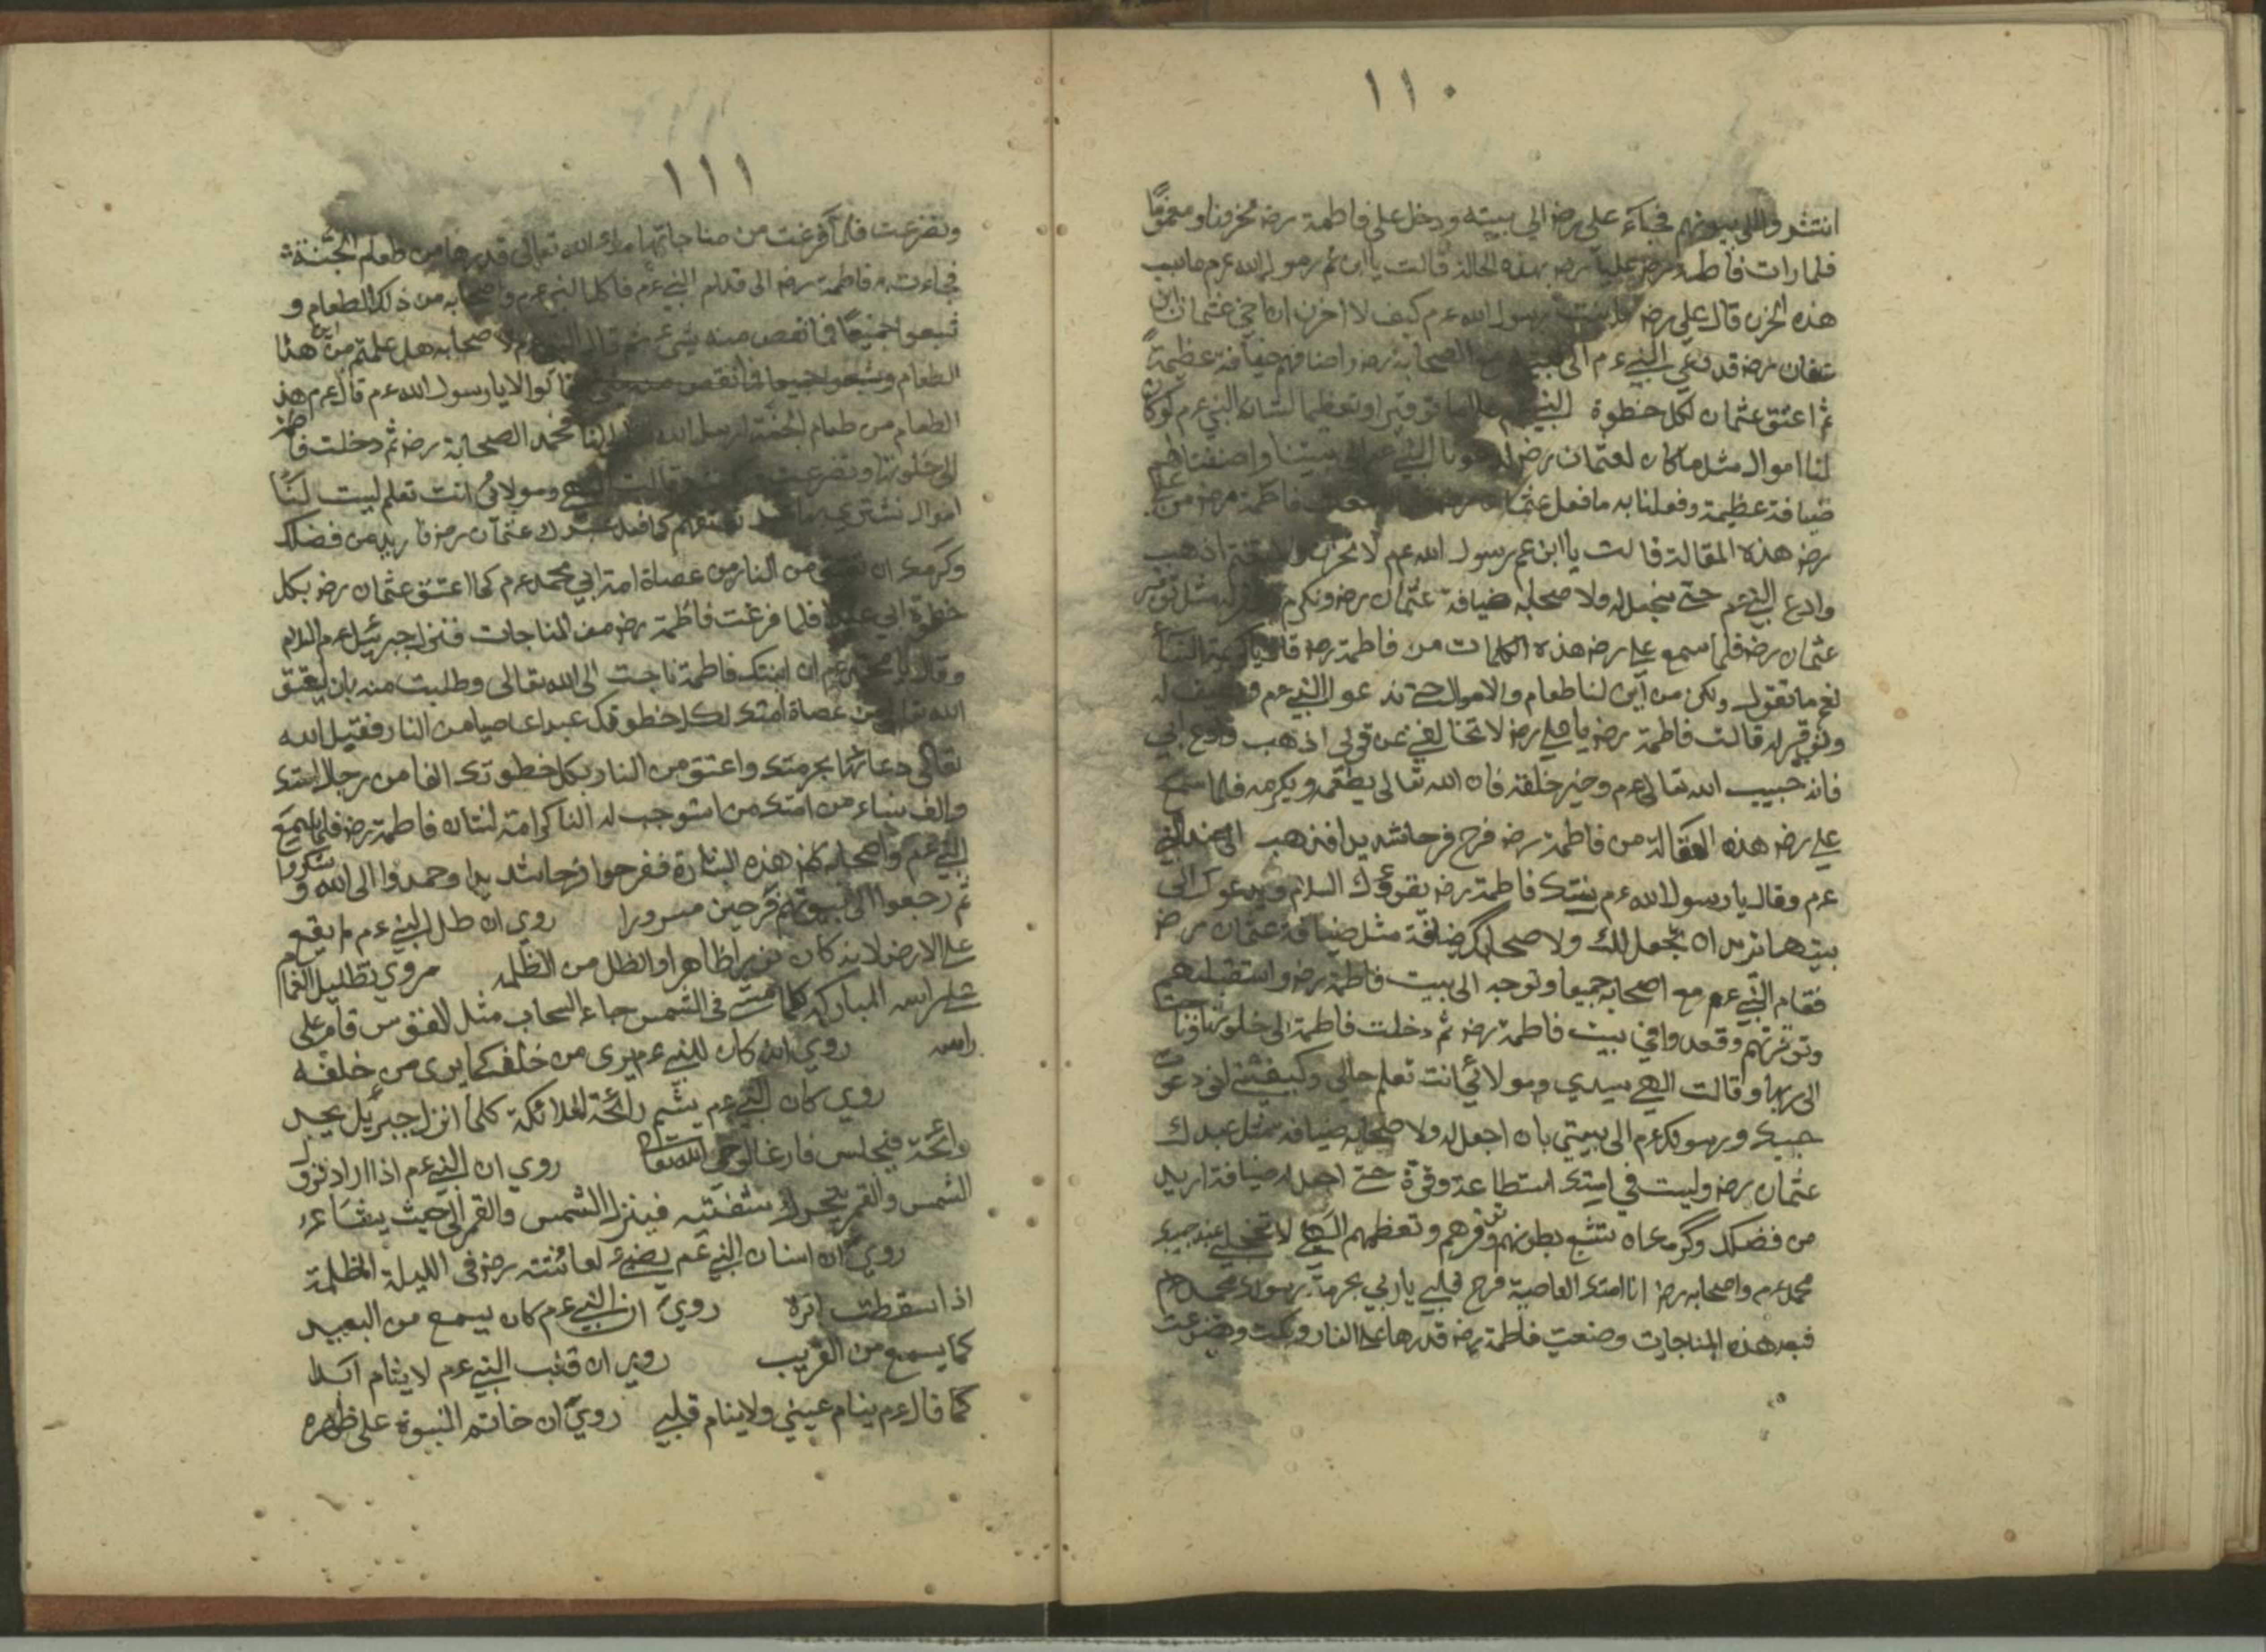 ١١٠
انتشروا الى بيوتهم فجاء على رضه الي بيته ودخل على فاطمة رضه محزونا ومغموًا
فلما رات فاطمة رضه علياً رضه بهذه الحالة قالت يا ابن عم رسول الله عم ما سبب
هذه الحزن قال علي رضه رسول الله عم كيف لا احزن ان اخي عثمان ابن
عفان رضه قد دعى النبي عم الى الصحابة رضه واضافهم ضيافة عظيمة
ثم اعتق عثمان لكل خطوة النبي توقيرا وتعظيما لشانه النبي عم لو كان
لنا اموال مثل ما كان لعثمان رضه النبي عم الى بيتنا واضفناهم
ضيافة عظيمة وفعلنا به ما فعل عثمان فاطمة رضه من على
رضه هذه المقالة قالت يا ابن عم رسول الله عم لا تحزن اذهب
وادع النبي عم حتى نجعل له ولا صحابه ضيافة عثمان رضه ونكرم مثل توقير
عثمان رضه فلما سمع علي رضه هذه الكلمات من فاطمة رضه قال النسأ
نعم ما تقول ولكن من أين لنا طعام والاموال حتى ندعو النبي عم له
وتوقير له قالت فاطمة رضه يا علي رضه لا تخالفني عن قولي اذهب وادع ابي
فانه حبيب الله تعالى عم وخير خلقه فان الله تعالى يطعمه ويكرمه فلما سمع
علي رضه هذه المقالة من فاطمة رضه فرح فرحا شديدا فذهب الى عند النبي
عم وقال يا رسول الله عم بنتك فاطمة رضه يقرؤك السلام ويدعوك الى
بيتها تريد ان تجعل لك ولا صحابك ضيافة مثل ضيافة عثمان رضه
فقام النبي عم مع اصحابه جميعا وتوجه الى بيت فاطمة رضه واستقبلهم
وتوقرتهم وقعدوا في بيت فاطمة رضه ثم دخلت فاطمة الى خلوتها وناجت
الى ربها وقالت الهي سيدي ومولائي انت تعلم حالي دعوت
حبيبك ورسولك عم الى بيتي بان اجعل له ولا صحابه ضيافة مثل عبدك
عثمان رضه وليت في استطاعة وقوة حتى اجعل له ضيافة اريد
من فضلك وكرمك ان تشبع بطونهم وتوقرهم وتعظمهم الهي لا تخجلني عند حبيبك
محمد عم واصحابه رضه انا امتك العاصية فرح قلبي يا ربي بحرمة رسولك محمد عم
فبعد هذه المناجات وضعت فاطمة رضه قدرها على النار وبكت وتضرعت
١١١
وتضرعت فلما فرغت من مناجاتها الله تعالى قدرها من طعام الجنة
فجاءت به فاطمة رضه الى قدام النبي عم فاكل النبي عم واصحابه من ذلك الطعام و
شبعوا جميعًا فما نقص منه شئ ثم قال النبي لا صحابه هل علمتم من اين هذا
الطعام وشبعوا جميعا فما نقص قالوا لا يا رسول الله عم قال عم هذا
الطعام من طعام الجنة ارسل الله الينا فحمد الصحابة رضه ثم دخلت فاطمة
الى خلوتها وتضرعت وقالت ومولائي انت تعلم ليت لنا
اموال نشتري كما فعل عبدك عثمان رضه فاريد من فضلك
وكرمك ان من النار من عصاة امة ابي محمد عم كما اعتق عثمان رضه بكل
خطوة ابي فلما فرغت فاطمة رضه من المناجات فنزل جبرئيل عم السلام
وقال يا محمد عم ان ابنتك فاطمة ناجت الى الله تعالى وطلبت منه بان يعتق
الله من عصاة امتك لكل خطوتك عبدا عاصيا من النار فقبل الله
تعالى دعائها بحرمتك واعتق من النار بكل خطوتك الفا من رجال امتك
والف نساء من امتك من استوجب له النا كرامة لشان فاطمة رضه فلما سمع
النبي عم واصحابه رضه هذه البشارة ففرحوا فرحا شديدا وحمدوا الى الله و شكروا
ثم رجعوا الى بيوتهم فرحين مسرورا روي ان ظل النبي عم ما يقع
على الارض لانه كان نورا ظاهرا والظل من الظلمه مروي تظليل الغمام
على راسه المباركه كلما مشى في الشمس جاء السحاب مثل القوس قام على
راسه روي انه كان للنبي عم يرى من خلفه كما يرى من خلفه
روي كان النبي عم يشم رائحة الملائكة كلما انزل جبرئيل يجد
رائحة فيجلس فارغا لوحي الله تعالى روي ان النبي عم اذا اراد نزول
الشمس والقمر يحرك شفتيه فينزل الشمس والقمر الى حيث يشاء عم
روي ان اسنان النبي عم يضئ لعائشة رضه في الليلة المظلمة
اذا سقطت ابرة روي ان النبي عم كان يسمع من البعيد
كما يسمع من القريب روي ان قلب النبي عم لا ينام ابدا
كما قال عم ينام عيني ولا ينام قلبي روي ان خاتم النبوة على ظهره